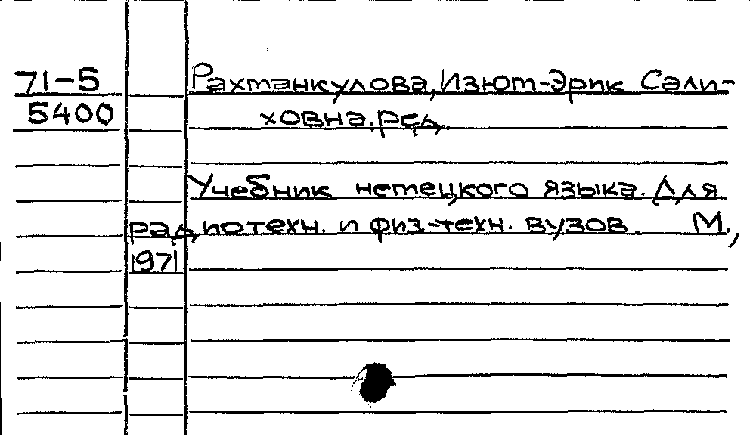 71-5 Рахманкулова, Изюм-Эрик Сали-
5400 ховна, ред.
Учебник немецкого языка. Для
радиотехн. и физ-техн. вузов. М.,
1971